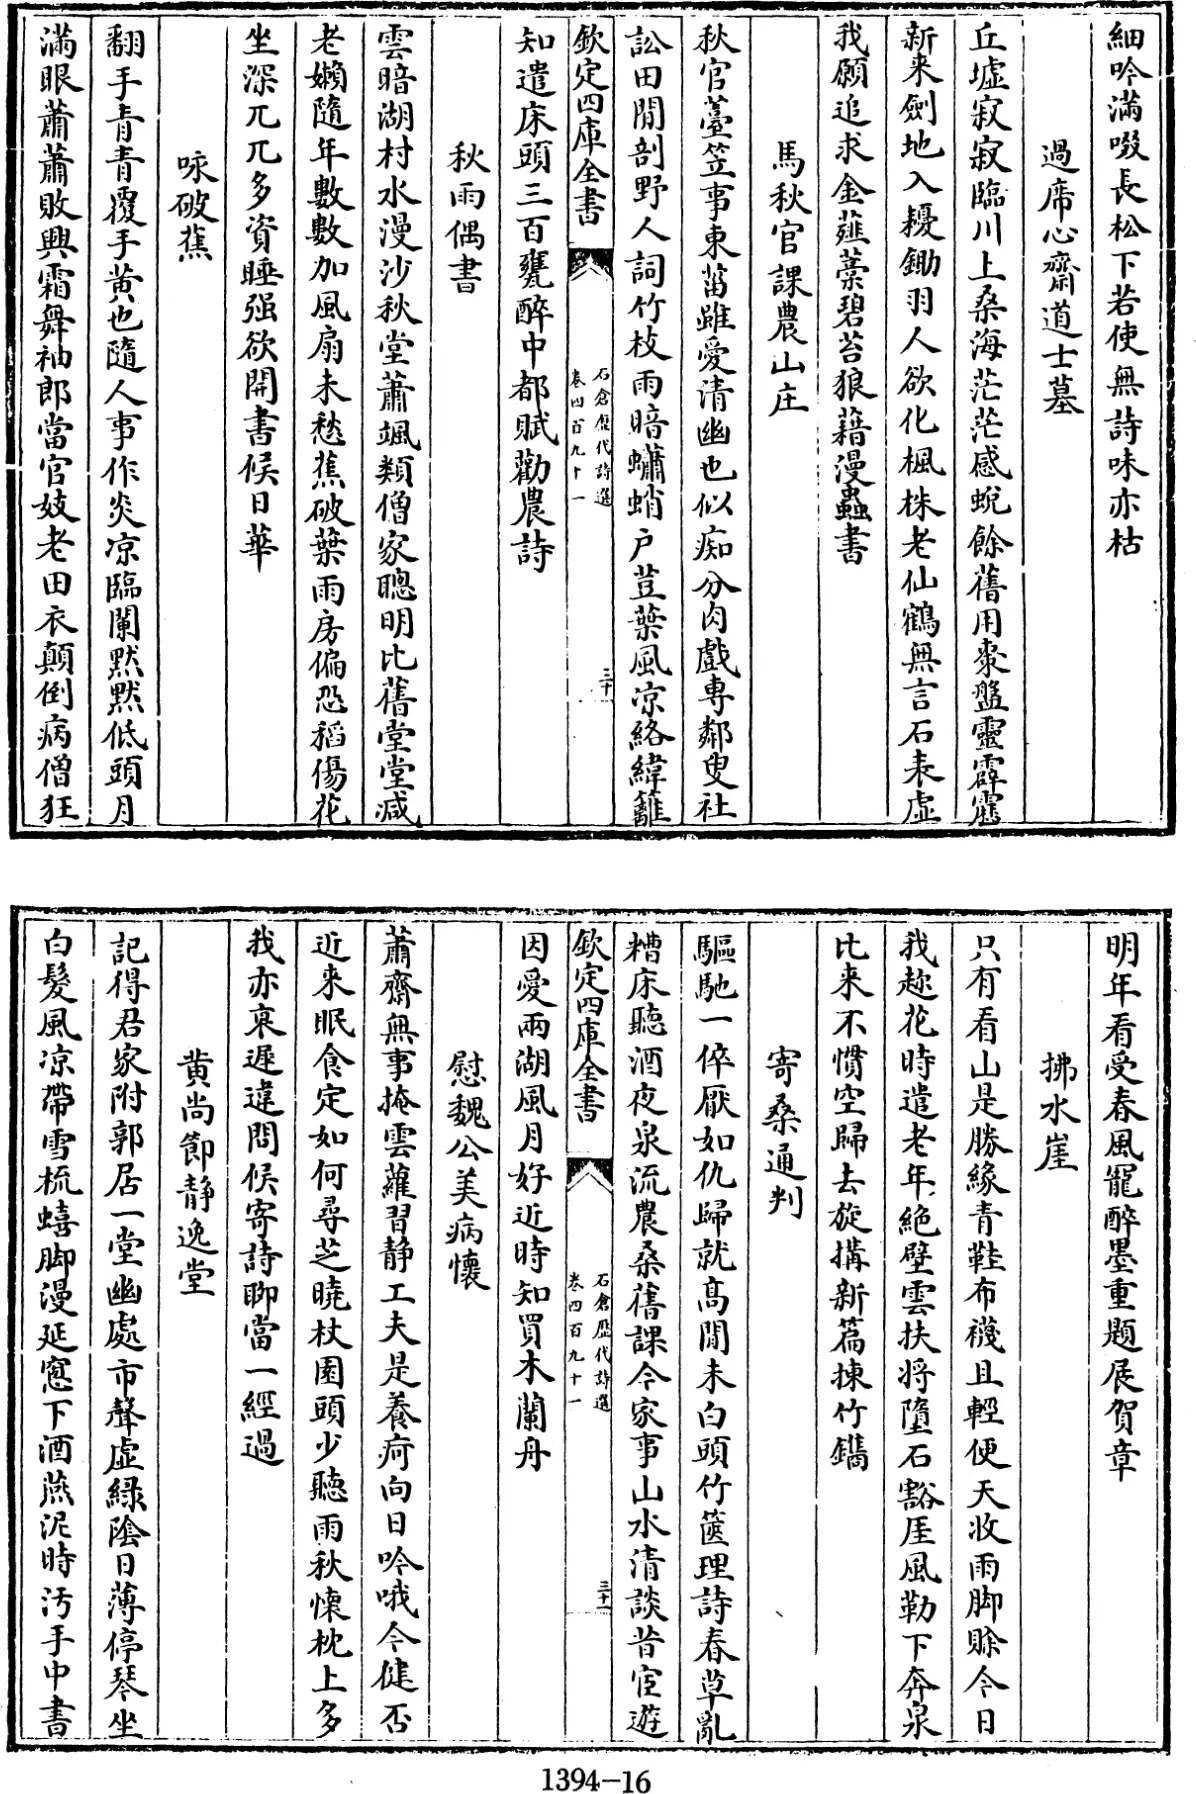 細吟滿啜長松下若使無詩味亦枯
過席心齋道士墓
丘墟寂寂臨川上桑海茫茫感蛻餘舊用棗盤靈霹靂
新来劍地入耰鋤羽人欲化楓株老仙鶴無言石表虚
我願追求金薤藁碧苔狼藉漫蟲書
馬秋官課農山庄
秋官薹笠事東菑雖愛清幽也似痴分肉戲専鄰叟社
訟田閒剖野人詞竹枝雨暗蠨蛸户荳葉風凉絡緯籬
欽定四庫全書
石倉歴代詩選
卷四百九十一
三十
知遣床頭三百甕醉中都賦勸農詩
秋雨偶書
雲暗湖村水漫沙秋堂蕭颯類僧家聰明比舊堂堂減
老嬾隨年數數加風扇未愁蕉破葉雨房偏恐稻傷花
坐深兀兀多資睡强欲開書候日華
咏破蕉
翻手青青覆手黄也隨人事作炎凉臨闌黙黙低頭月
滿眼蕭蕭敗興霜舞袖郎當官妓老田衣顛倒病僧狂
明年看受春風寵醉墨重題展賀章
拂水崖
只有看山是勝緣青鞋布襪且輕便天收雨脚賒今日
我趂花時遣老年絶壁雲扶將墮石豁厓風勒下奔泉
比来不慣空歸去旋搆新篇揀竹鐫
寄桑通判
驅馳一倅厭如仇歸就髙閒未白頭竹篋理詩春草亂
糟床聽酒夜泉流農桑舊課今家事山水清談昔宦遊
欽定四庫全書
石倉歴代詩選
卷四百九十一
三十一
因愛兩湖風月好近時知買木蘭舟
慰魏公美病懷
蕭齋無事掩雲蘿習静工夫是養疴向日吟哦今健否
近来眠食定如何尋芝曉杖園頭少聽雨秋懷枕上多
我亦衰遲違問候寄詩聊當一經過
黄尚節静逸堂
記得君家附郭居一堂幽處市聲虚緑陰日薄停琴坐
白髮風凉帶雪梳蟢脚漫延窻下酒燕泥時汚手中書
1394-16